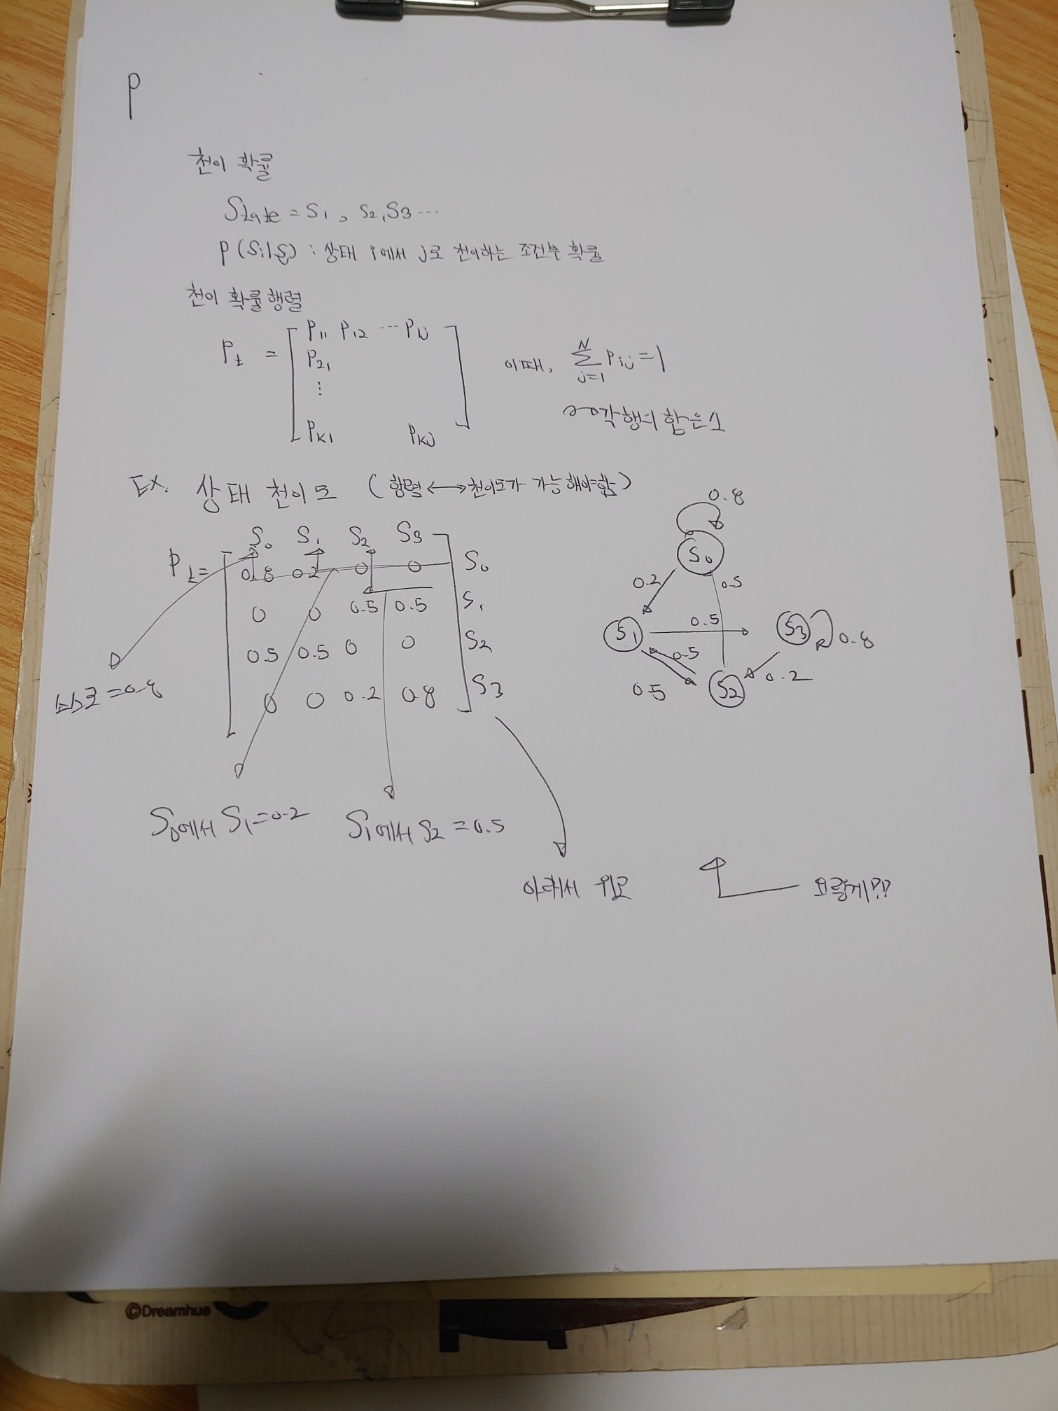 P
천이 확률
State = S1, S2, S3 ...
P(Si|Sj) : 상태 i에서 j로 천이하는 조건부 확률
천이 확률행렬
Pt = [ P11 P12 ... P1j
P21
⋮
PK1 PKj ]
이때, N Σ j=1 Pij = 1
각행의 합은 1
Ex. 상태 천이도 (행렬 ↔ 천이도가 가능해야함)
S0 S1 S2 S3
Pt = 0.8 0.2 0 0 S0
0 0 0.5 0.5 S1
0.5 0.5 0 0 S2
0 0 0.2 0.8 S3
=0.8
S0에서 S1=0.2
S1에서 S2 = 0.5
0.8
S0
0.2
0.5
S1
0.5
S3
0.8
0.5
0.5
S2
0.2
아래서 위로
요렇게??
©Dreamhue